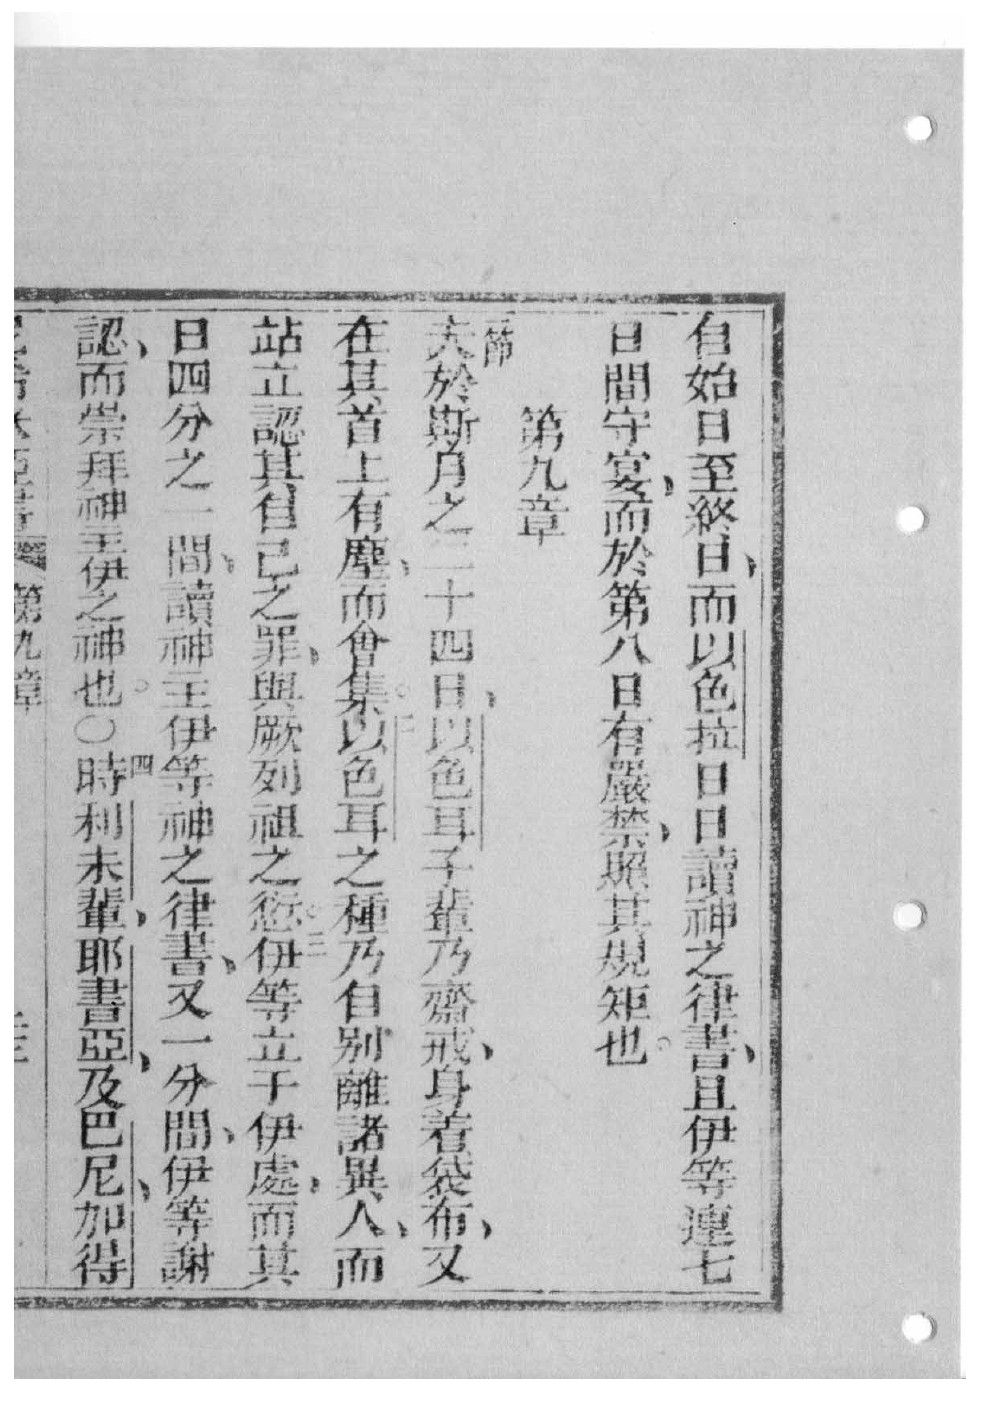 自始日至終日、而以色拉日日讀神之律書、且伊等連七
日間守宴、而於第八日有嚴禁、照其規矩也。
第九章
一節夫於斯月之二十四日、以色耳子輩乃齋戒、身着袋布、又
在其首上有塵、而會集。二以色耳之種乃自别離諸異人、而
站立認其自己之罪、與厥列祖之愆。三伊等立于伊處、而其
日四分之一間、讀神主伊等神之律書、又一分間、伊等謝
認、而崇拜神主伊之神也。〇四時利未輩、耶書亞、及巴尼、加得
第九章